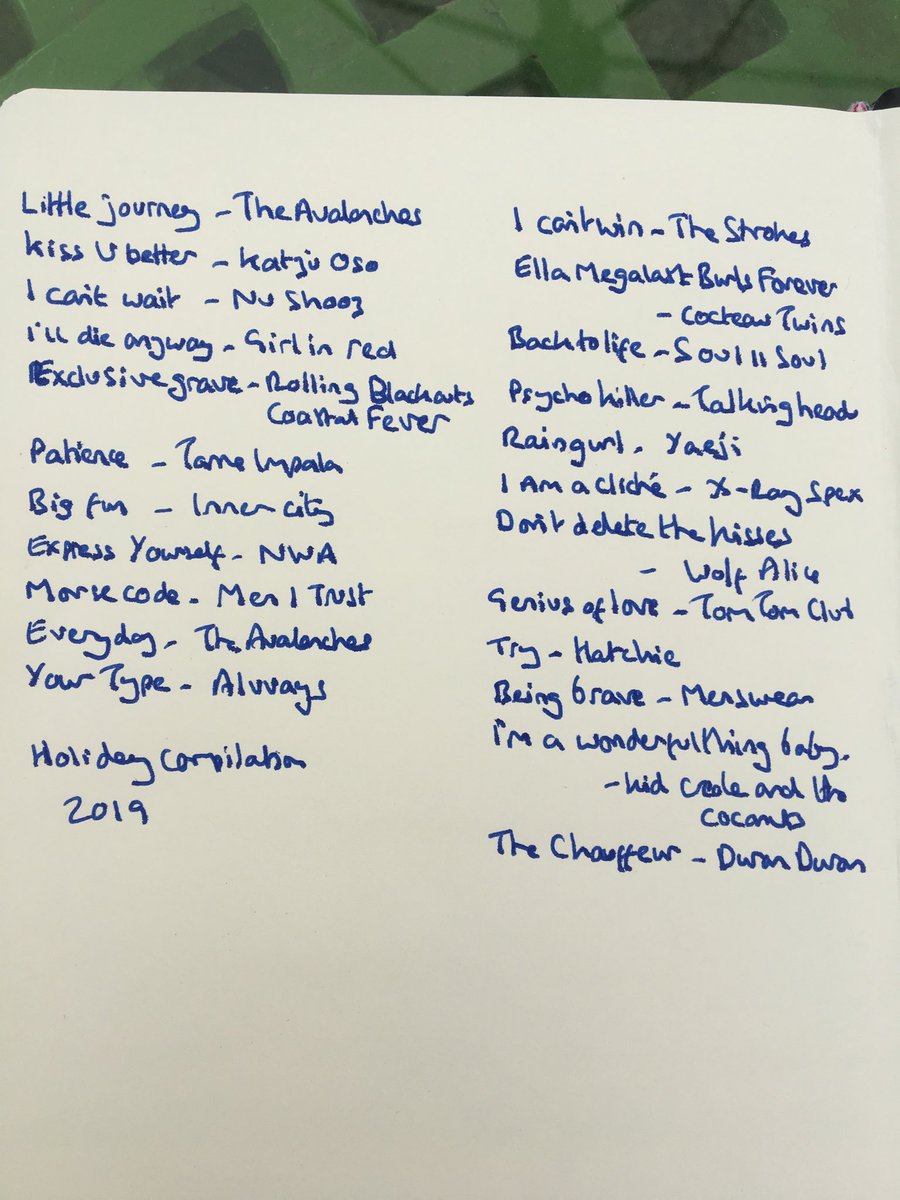 Little journey - The Avalanches
Kiss U better - Katzù Oso
I can't wait - Nu Shooz
i'll die anyway - Girl in red
Exclusive grave - Rolling Blackouts
Coastal Fever
Patience - Tame Impala
Big fun - Inner city
Express Yourself - NWA
Morse code - Men I Trust
Everyday - The Avalanches
Your Type - Alvvays
Holiday Compilation
2019
I can't win - The Strokes
Ella Megalast Burls Forever
- Cocteau Twins
Back to life - Soul II Soul
Psycho killer - Talking heads
Raingurl - Yaeji
I Am a cliché - X-Ray Spex
Don't delete the kisses
- Wolf Alice
Genius of love - Tom Tom Club
Try - Hatchie
Being brave - Menswear
i'm a wonderful thing baby.
- kid creole and the
coconuts
The Chauffeur - Duran Duran